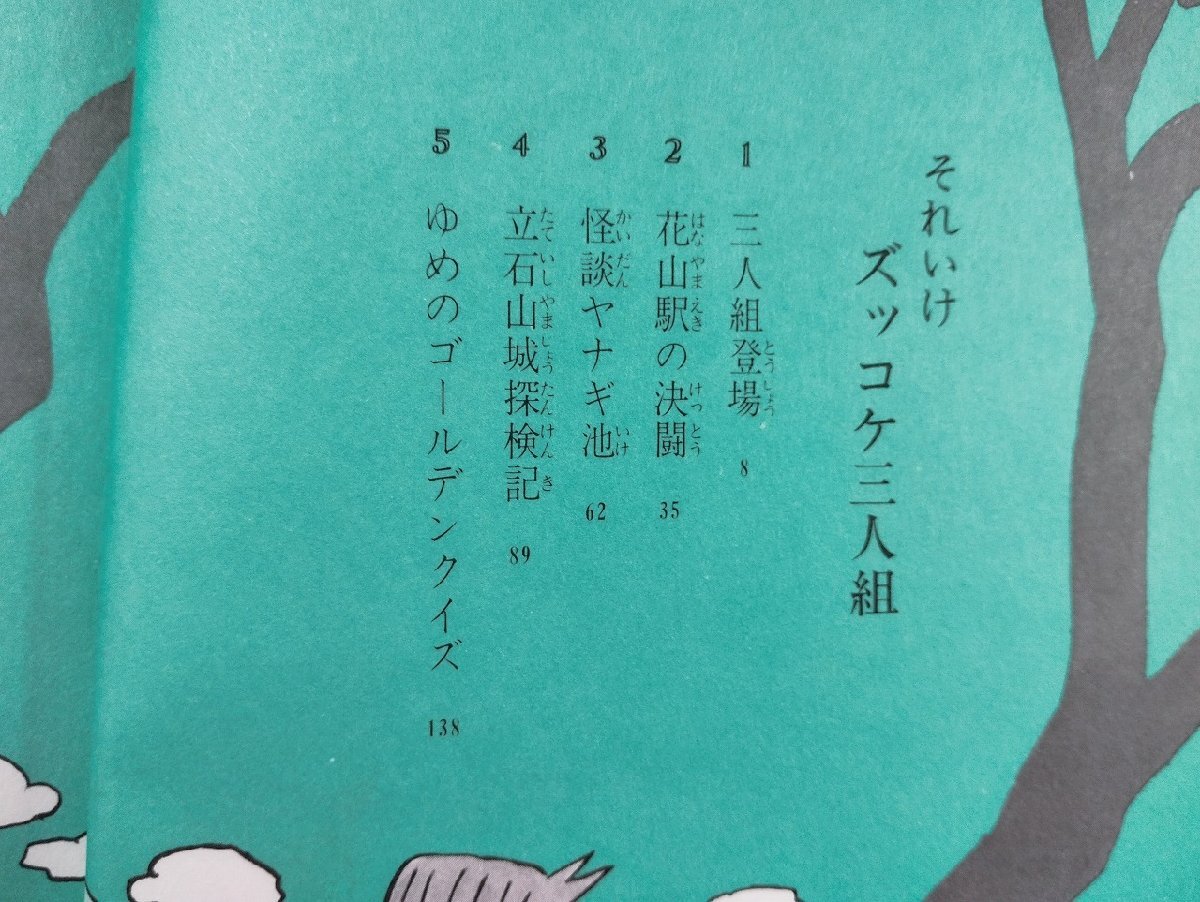 それいけ
ズッコケ三人組
1 三人組登場 8
とうじょう
2 花山駅の決闘 35
はなやまえき けっとう
3 怪談ヤナギ池 62
かいだん いけ
4 立石山城探検記 89
たていしやまじょうたんけんき
5 ゆめのゴールデンクイズ 138